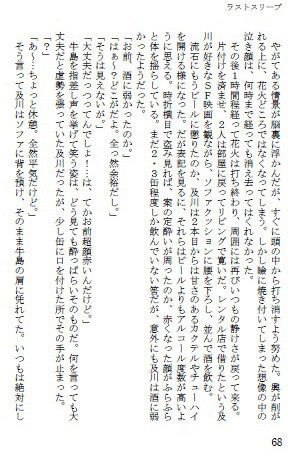 ラストスリープ
やがてある情景が脳裏に浮かんだが、すぐに頭の中から打ち消すよう努めた。興が削が
れる上に、花火どころではなくなってしまう。しかし瞼に焼き付いてしまった想像の中の
泣き顔は、何時まで経っても消え去ってはくれなかった。
その後1時間程経って花火は打ち終わり、周囲には再びいつもの静けさが戻って来る。
片付けを済ませ、2人は部屋に戻ってリビングで寛いだ。レンタル店で借りたという及
川が好きなSF映画を観ながら、ソファクッションに腰を下ろし、並んで酒を飲む。
流石にもうビールに懲りたのか、及川は2本目からは甘さのあるカクテルやチューハイ
を開ける様になった。だが表記を見るに、それらはビールよりもアルコール度数が高いよ
うに思える。時折横目で盗み見れば、案の定酔いが周ったのか、赤くなった顔がふらふら
と体を揺らしている。まだ2・3缶程度しか飲んでいない筈だが、意外にも及川は酒に弱
かったようだ。
「お前、酒に弱かったのか。」
「はぁ〜?どこがだよ。全っ然余裕だし。」
「そうは見えないが。」
「大丈夫だっつってんでしょ!…は、てかお前超顔赤いんだけど。」
牛島を指差し声を挙げて笑う姿は、どう見ても酔っぱらいそのものだ。何を言っても大
丈夫だと虚勢を張っていた及川だったが、少し缶に口を付けた所でその手が止まった。
「?」
「あ〜…ちょっと休憩。全然平気だけど。」
そう言って及川はソファに背を預け、そのまま牛島の肩に凭れてた。いつもは絶対にし
68